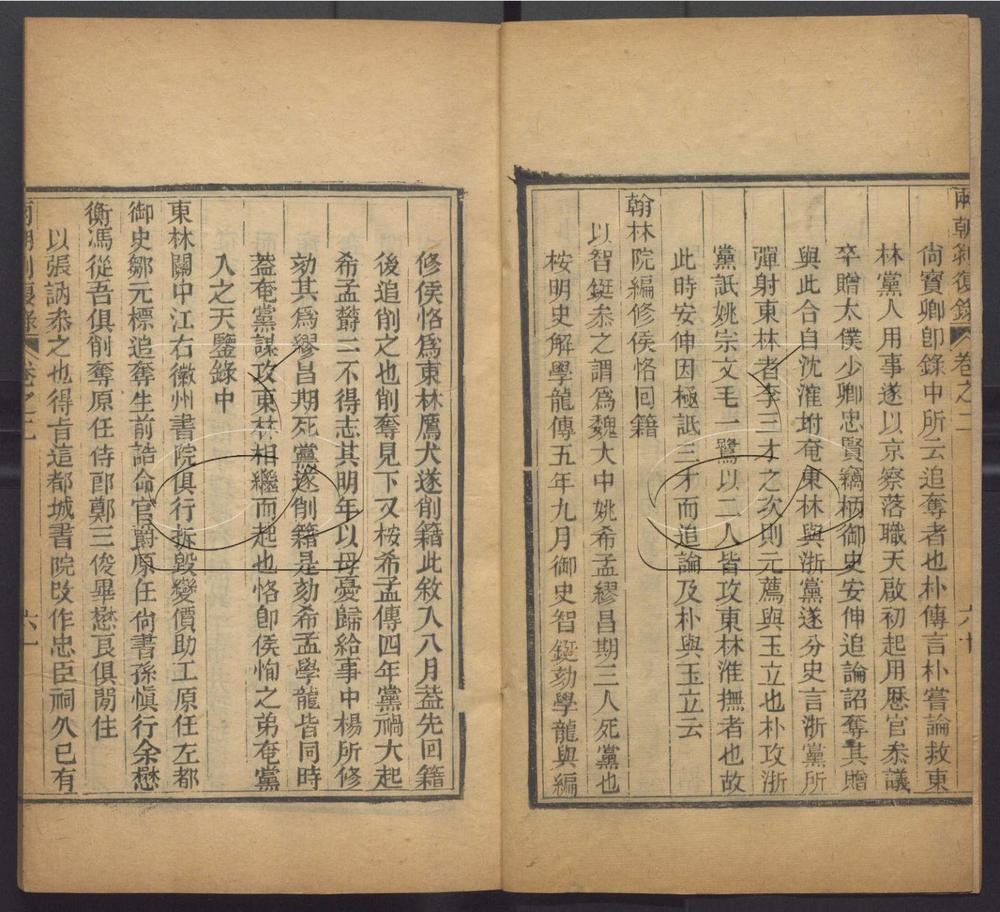 兩朝剝復錄 卷之二 六十
尙寶卿卽錄中所云追奪者也朴傳言朴嘗論救東
林黨人用事遂以京察落職天啟初起用歷官叅議
卒贈太僕少卿忠賢竊柄御史安伸追論詔奪其贈
與此合自沈㴶坿奄東林與浙黨遂分史言浙黨所
彈射東林者李三才之次則元薦與玉立也朴攻浙
黨詆姚宗文毛一鷺以二人皆攻東林淮撫者也故
此時安伸因極詆三才而追論及朴與玉立云
翰林院編修侯恪回籍
以智鋌叅之謂爲魏大中姚希孟繆昌期三人死黨也
桉明史解學龍傳五年九月御史智鋌劾學龍與編
修侯恪爲東林鷹犬遂削籍此敘入八月葢先回籍
後追削之也削奪見下又桉希孟傳四年黨禍大起
希孟鬱二不得志其明年以母憂歸給事中楊所修
劾其爲繆昌期死黨遂削籍是劾希孟學龍皆同時
葢奄黨謀攻東林相繼而起也恪卽侯恂之弟奄黨
入之天鑒錄中
東林關中江右徽州書院俱行拆毀變價助工原任左都
御史鄒元標追奪生前誥命官爵原任尙書孫愼行余懋
衡馮從吾俱削奪原任侍郎鄭三俊畢懋良俱閒住
以張訥叅之也得旨這都城書院改作忠臣祠久已有
兩朝剝復錄 卷之二 六十一